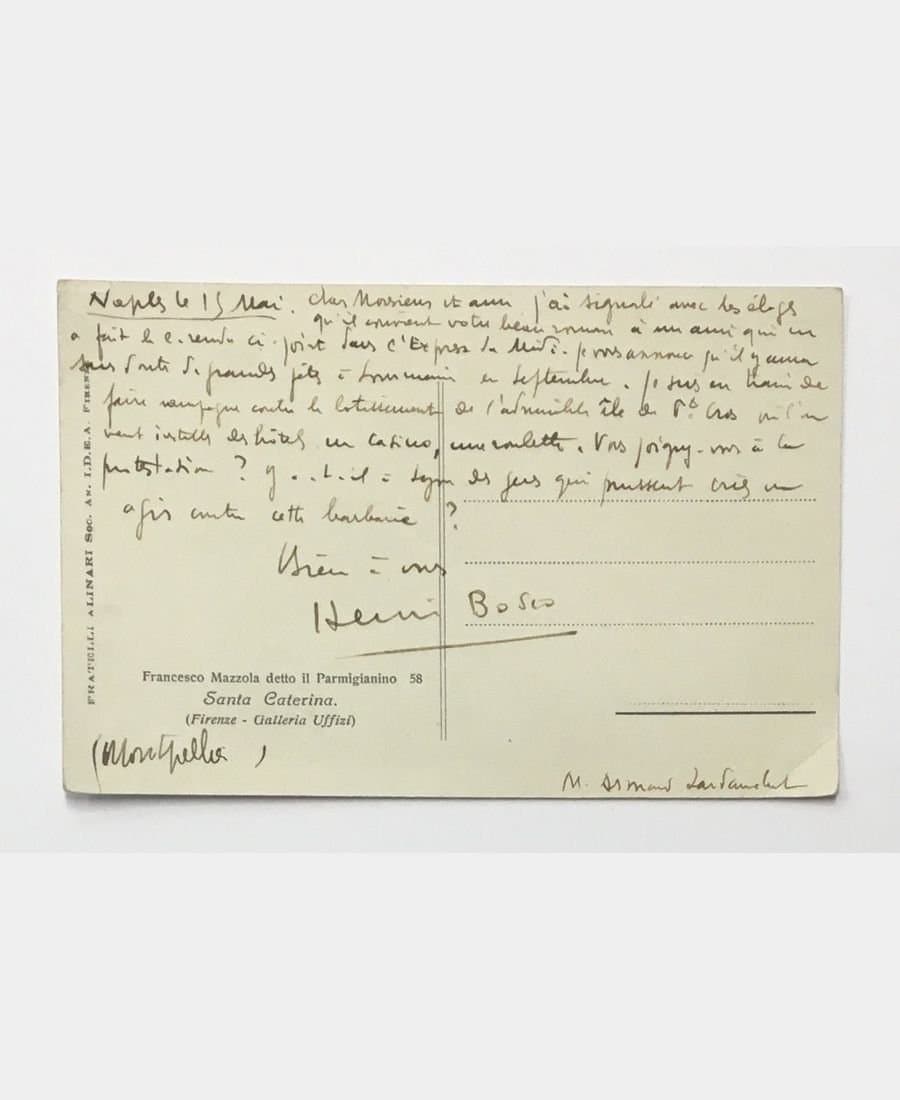 Naples le 15 Mai. Cher Monsieur et ami j'ai signalé avec les éloges
qu'il convient votre beau roman à un ami qui en
a fait le c. rendu ci-joint dans l'Express du Midi. Je vous annonce qu'il y aura
sans doute de grandes fêtes à Lourmarin en Septembre. Je suis en train de
faire campagne contre le lotissement de l'admirable île de Pt Cros où l'on
veut installer des hôtels un casino, une roulette. Vous joignez-vous à la
protestation ? Y a-t-il à Lyon des gens qui pussent crier ou
agir contre cette barbarie ?
Bien à vous
Henri Bosco
FRATELLI ALINARI Soc. AN. I.D.E.A. FIRENZE
Francesco Mazzola detto il Parmigianino 58
Santa Caterina.
(Firenze - Galleria Uffizi)
(Montpellier)
M. Armand